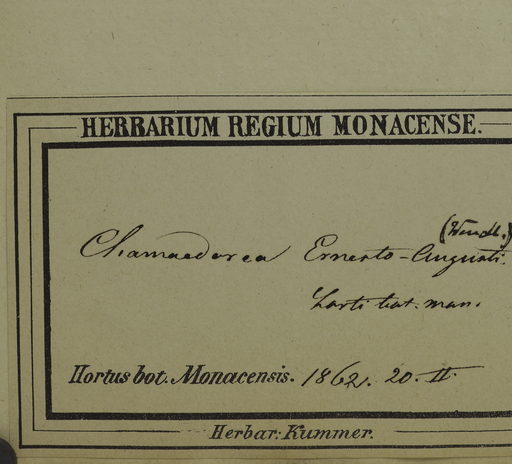 HERBARIUM REGIUM MONACENSE.
(Wendl.)
Chamaedorea Ernesto-Augusti.
horti bot. mon.
Hortus bot. Monacensis. 1862. 20. II.
Herbar: Kummer.